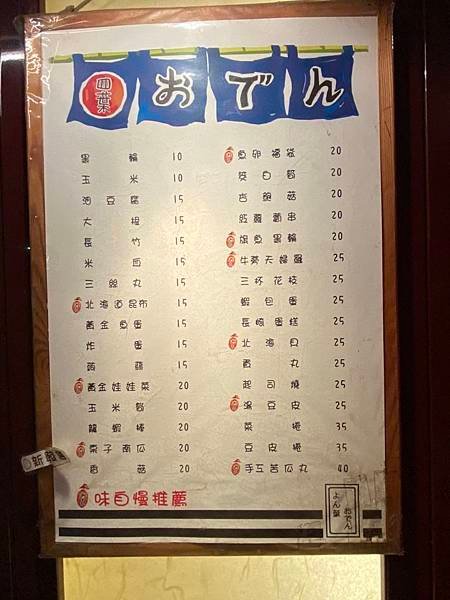 四葉
おでん
黑輪 10
玉米 10
油豆腐 15
大根 15
長竹 15
米血 15
三絲丸 15
北海道昆布 15
黃金魚蛋 15
炸蛋 15
蒟蒻 15
黃金娃娃菜 20
玉米筍 20
龍蝦棒 20
栗子南瓜 20
香菇 20
魚卵福袋 20
筊白筍 20
杏鮑菇 20
紅蘿蔔串 20
旗魚黑輪 20
牛蒡天婦羅 25
三杯花枝 25
蝦包蛋 25
長崎蛋糕 25
北海貝 25
貢丸 25
起司燒 25
濕豆皮 25
菜捲 35
豆皮捲 35
手工苦瓜丸 40
味自慢推薦
おでん
よん葉